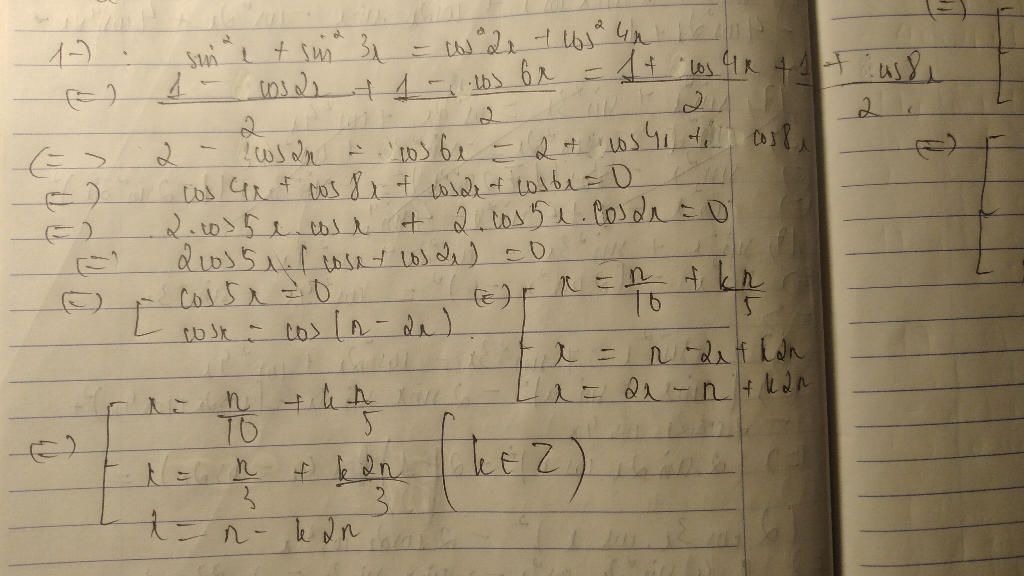 1-) : sin²x + sin²3x = cos²2x + cos²4x
(=) (1 - cos2x)/2 + (1 - cos6x)/2 = (1 + cos4x)/2 + (1 + cos8x)/2
(=> 2 - cos2x - cos6x = 2 + cos4x + cos8x
(=) cos4x + cos8x + cos2x + cos6x = 0
(=) 2.cos5x.cosx + 2.cos5x.cos2x = 0
(=) 2cos5x.(cosx + cos2x) = 0
(=) [ cos5x = 0
cosx = cos(π - 2x)
(=) [ x = π/10 + kπ/5
x = π - 2x + k2π
x = 2x - π + k2π
(=) [ x = π/10 + kπ/5
x = π/3 + k2π/3 (k ∈ Z)
x = π - k2π
(=) [
(=) [